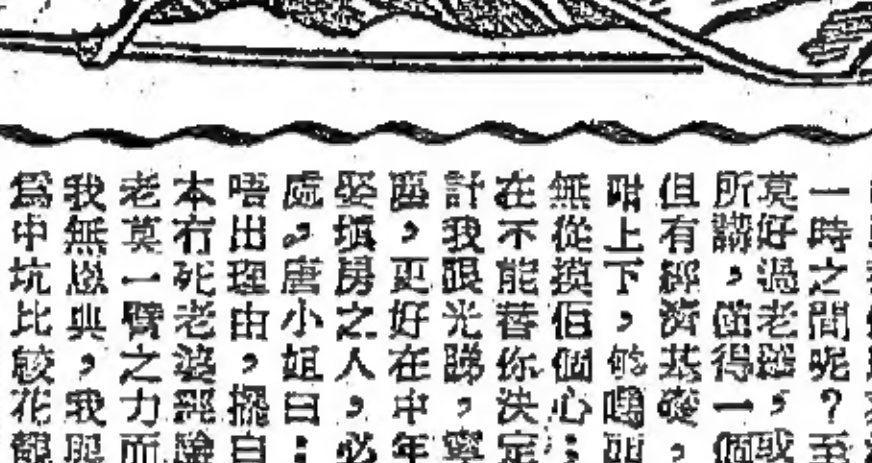 一時之間呢？至
莫好過老 ，或
所講，值得一個
但有經濟基礎，
咁上下，
無從摸佢個心：
在不能替你決定
計我眼光睇，寧
，更好在中年
娶填房之人，必
處。唐小姐曰：
唔出理由，擺白
本冇死老婆經驗
老莫一臂之力而
我無恩典，我與
爲中坑比較花靚